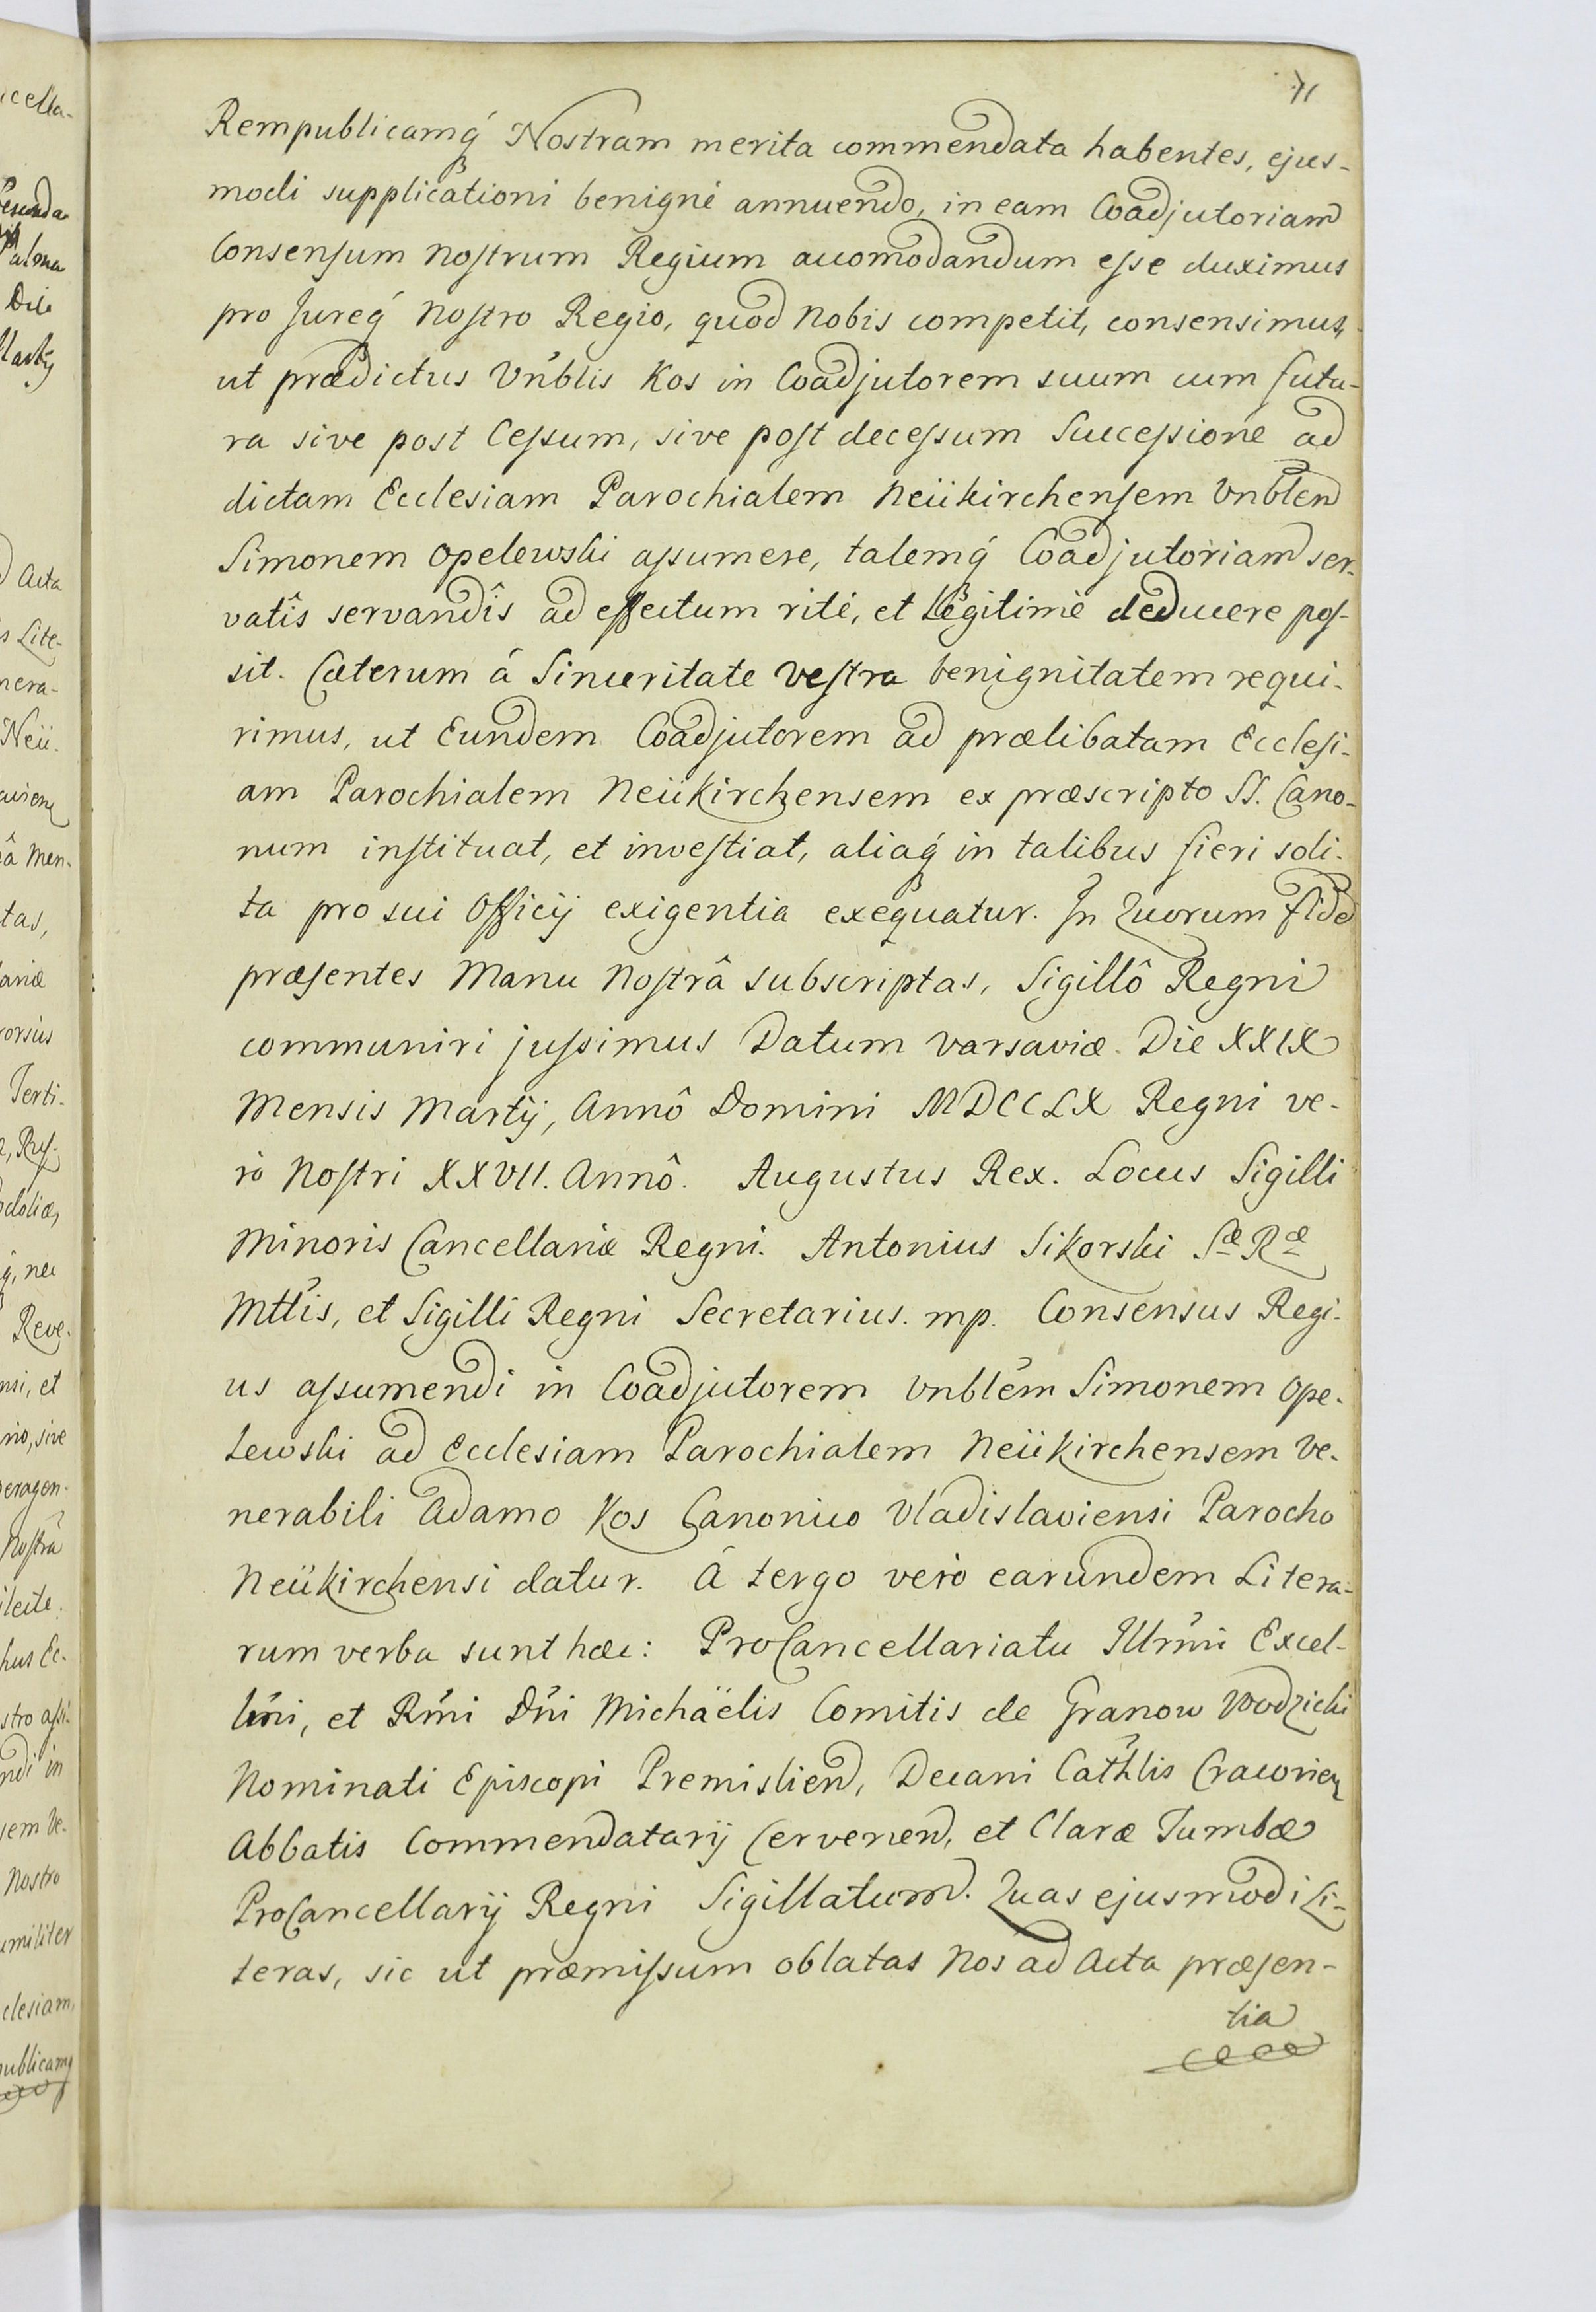 71
Rempublicamq́ Nostram merita commendata habentes, ejus-
modi supplicationi benignè annuendo, in eam Coadjutoriam
Consensum Nostrum Regium accomodandum esse duximus
pro Jureq́ Nostro Regio, quod Nobis competit, consensimus,
ut prædictus Vnb́lis Kos in Coadjutorem suum cum futu-
ra sive post Cessum, sive post decessum Successioné ad
dictam Ecclesiam Parochialem Neükirchensem Vnblem
Simonem Opelewski assumere, talemq́ Coadjutoriam ser-
vatîs servandîs ad effectum ritè, et Legitimè deducere pos-
sit. Cæterum á Sinceritate Vestra benignitatem requi-
rimus, ut Eundem Coadjutorem ad prælibatam Ecclesi-
am Parochialem Neükirchensem ex præscripto SS. Cano-
num instituat, et investiat, aliaq́ in talibus fieri soli-
ta pro sui Officij exigentia exequatur. In Quorum fidé
præsentes Manu Nostrâ subscriptas, Sigillô Regni
communiri jussimus Datum Varsaviæ. Die XXIX
Mensis Martij, Annô Domini MDCCLX Regni ve-
rò Nostri XXVII. Annô. Augustus Rex. Locus Sigilli
Minoris Cancellariæ Regni. Antonius Sikorski Sæ Ræ
Mttis, et Sigilli Regni Secretarius. mp. Consensus Regi-
us assumendi in Coadjutorem Vnblém Simonem Ope-
lewski ad Ecclesiam Parochialem Neükirchensem Ve-
nerabili Adamo Kos Canonico Vladislaviensi Parocho
Neükirchensi datur. Á tergo verò earundem Litera-
rum verba sunt hæc: ProCancellariatu Illrḿi Excel-
lḿi, et Rḿi Dńi Michaëlis Comitis de Granow Wodzicki
Nominati Episcopi Premislien, Decani Cathlis Cracovien
Abbatis Commendatarij Cervenen, et Claræ Tumbæ
ProCancellarij Regni Sigillatum. Quas ejusmodi Li-
teras, sic ut præmissum oblatas Nos ad Acta præsen-
tia